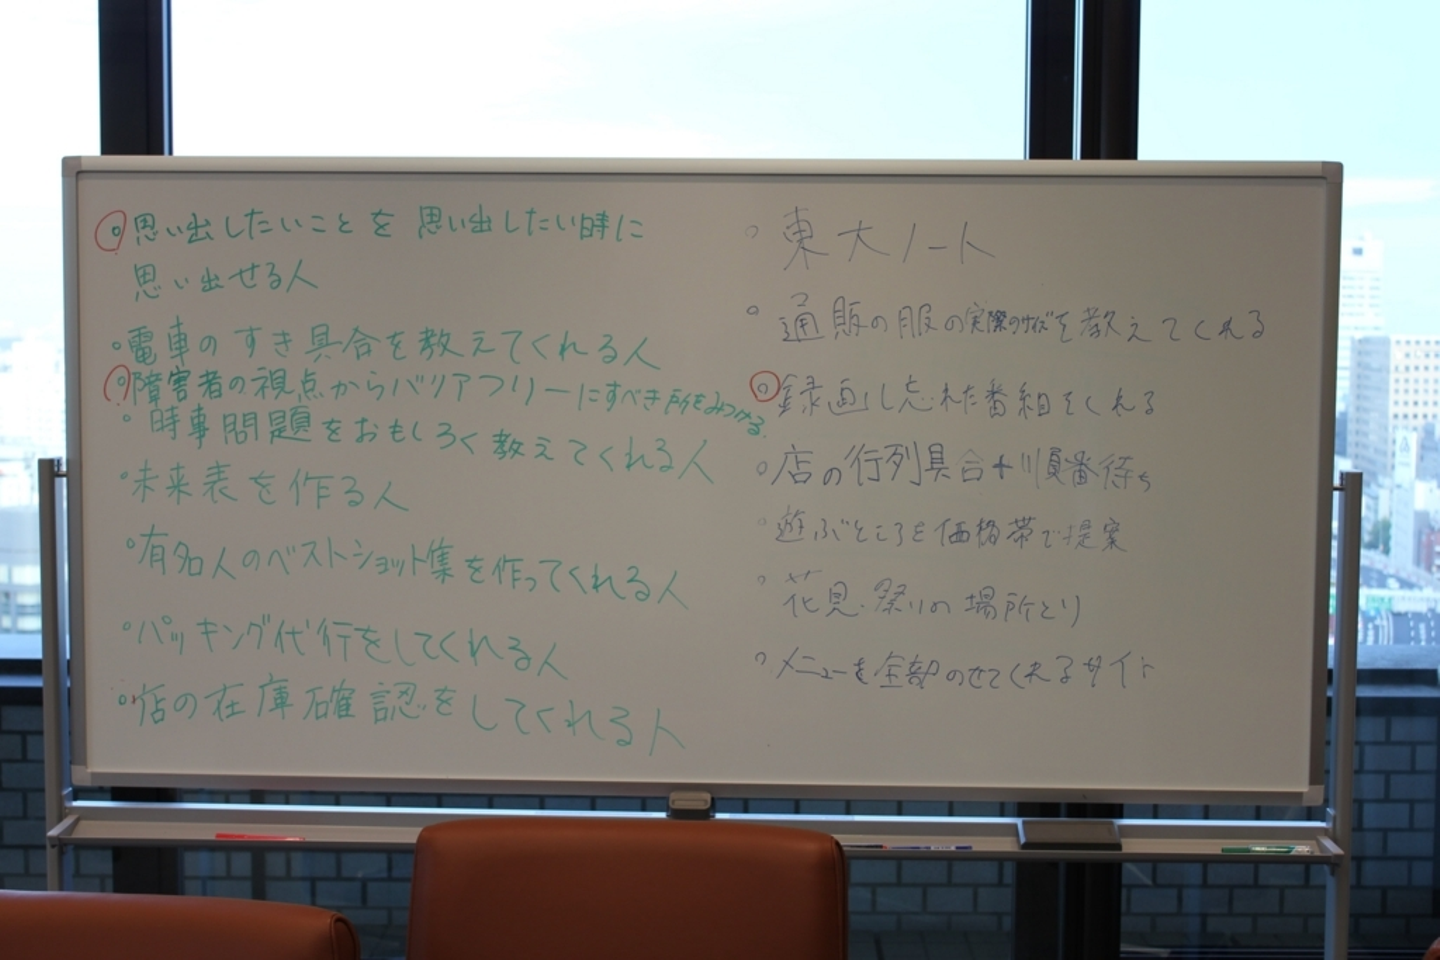 思い出したいことを 思い出したい時に
思い出せる人
電車のすき具合を教えてくれる人
障害者の視点からバリアフリーにすべき所をみつける
時事問題をおもしろく教えてくれる人
未来表を作る人
有名人のベストショット集を作ってくれる人
パッキング代行をしてくれる人
店の在庫確認をしてくれる人
東大ノート
通販の服の実際のサイズを教えてくれる
録画し忘れた番組をくれる
店の行列具合+順番待ち
遊ぶところを価格帯で提案
花見・祭りの場所とり
メニューを全部のせてくれるサイト